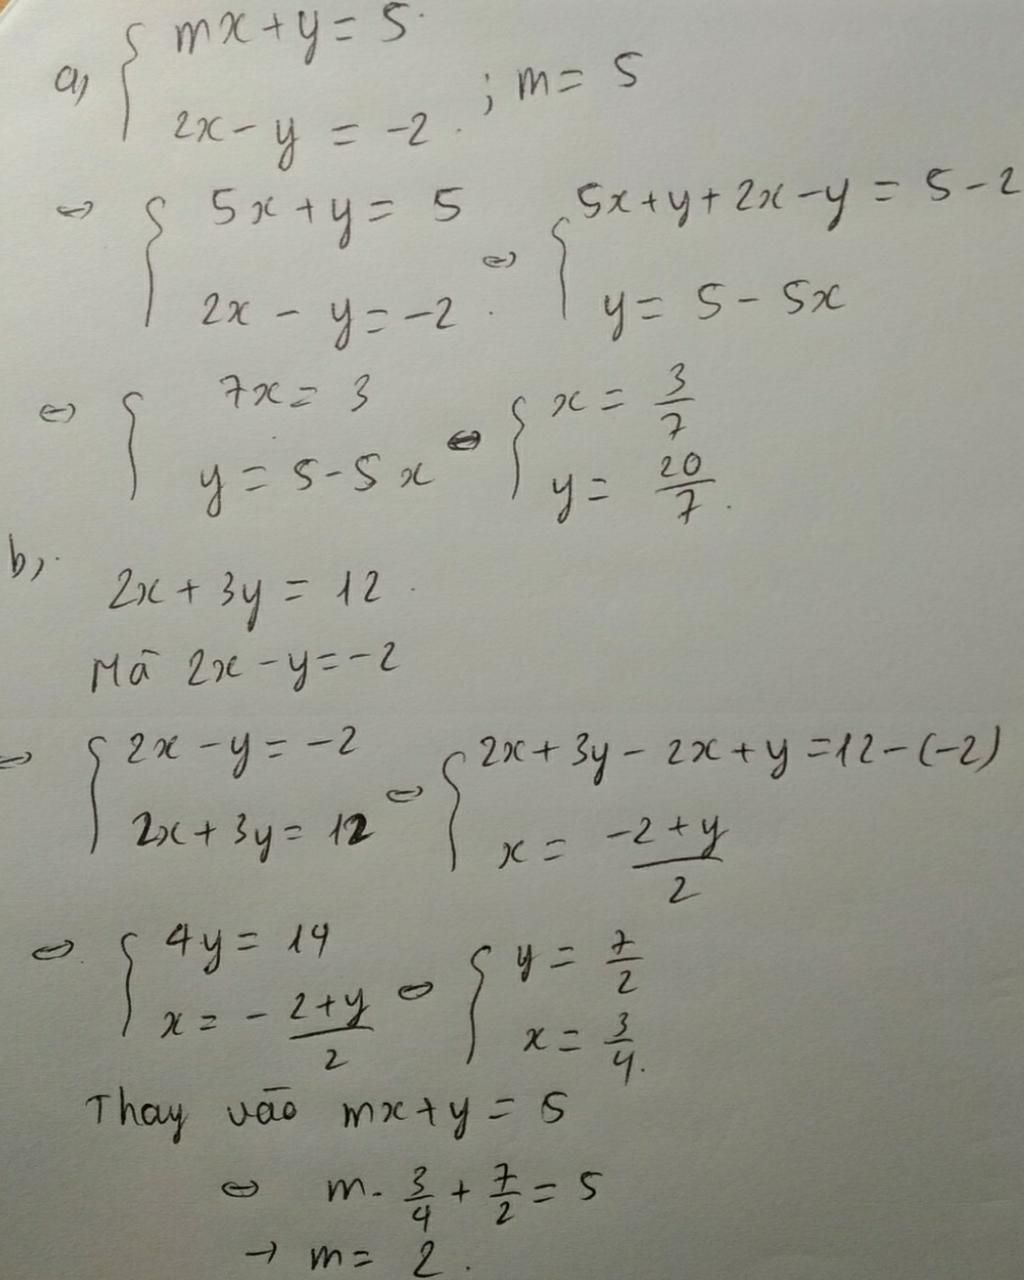 a) { mx + y = 5
2x - y = -2 . ; m = 5
⇔ { 5x + y = 5
2x - y = -2 . ⇔ { 5x + y + 2x - y = 5 - 2
y = 5 - 5x
⇔ { 7x = 3
y = 5 - 5x ⇔ { x = 3/7
y = 20/7 .
b) .
2x + 3y = 12 .
Mà 2x - y = -2
⇔ { 2x - y = -2
2x + 3y = 12 ⇔ { 2x + 3y - 2x + y = 12 - (-2)
x = (-2 + y)/2
⇔ { 4y = 14
x = - (2 + y)/2 ⇔ { y = 7/2
x = 3/4 .
Thay vào mx + y = 5
⇔ m . 3/4 + 7/2 = 5
→ m = 2 .